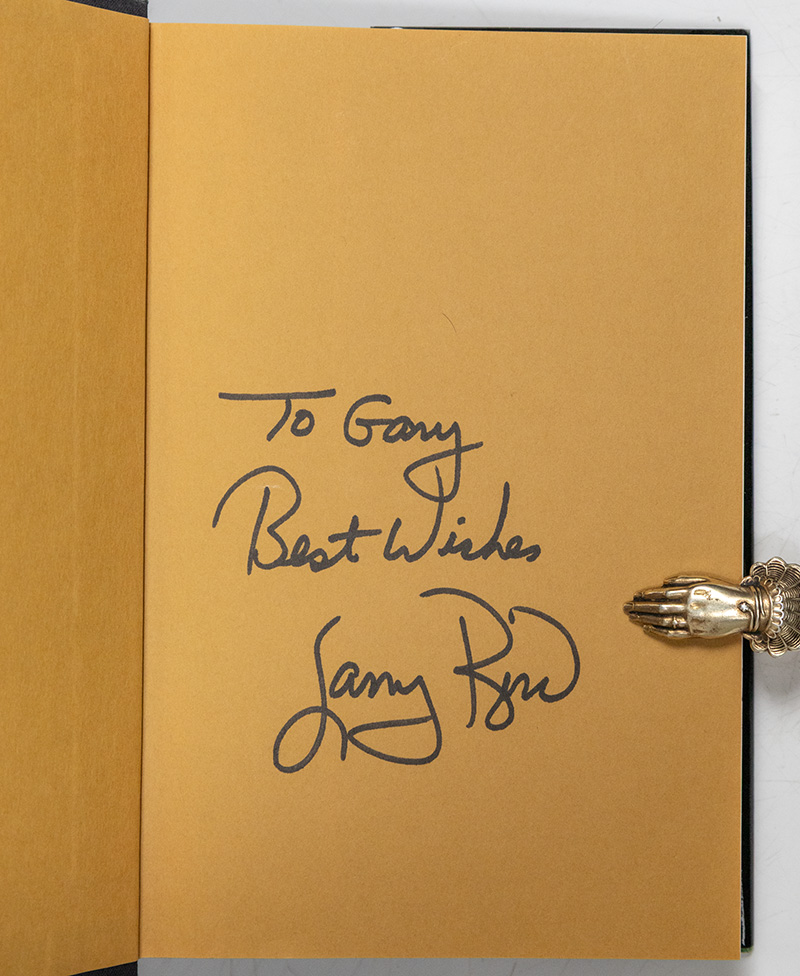 To Gary
Best Wishes
Larry Bird